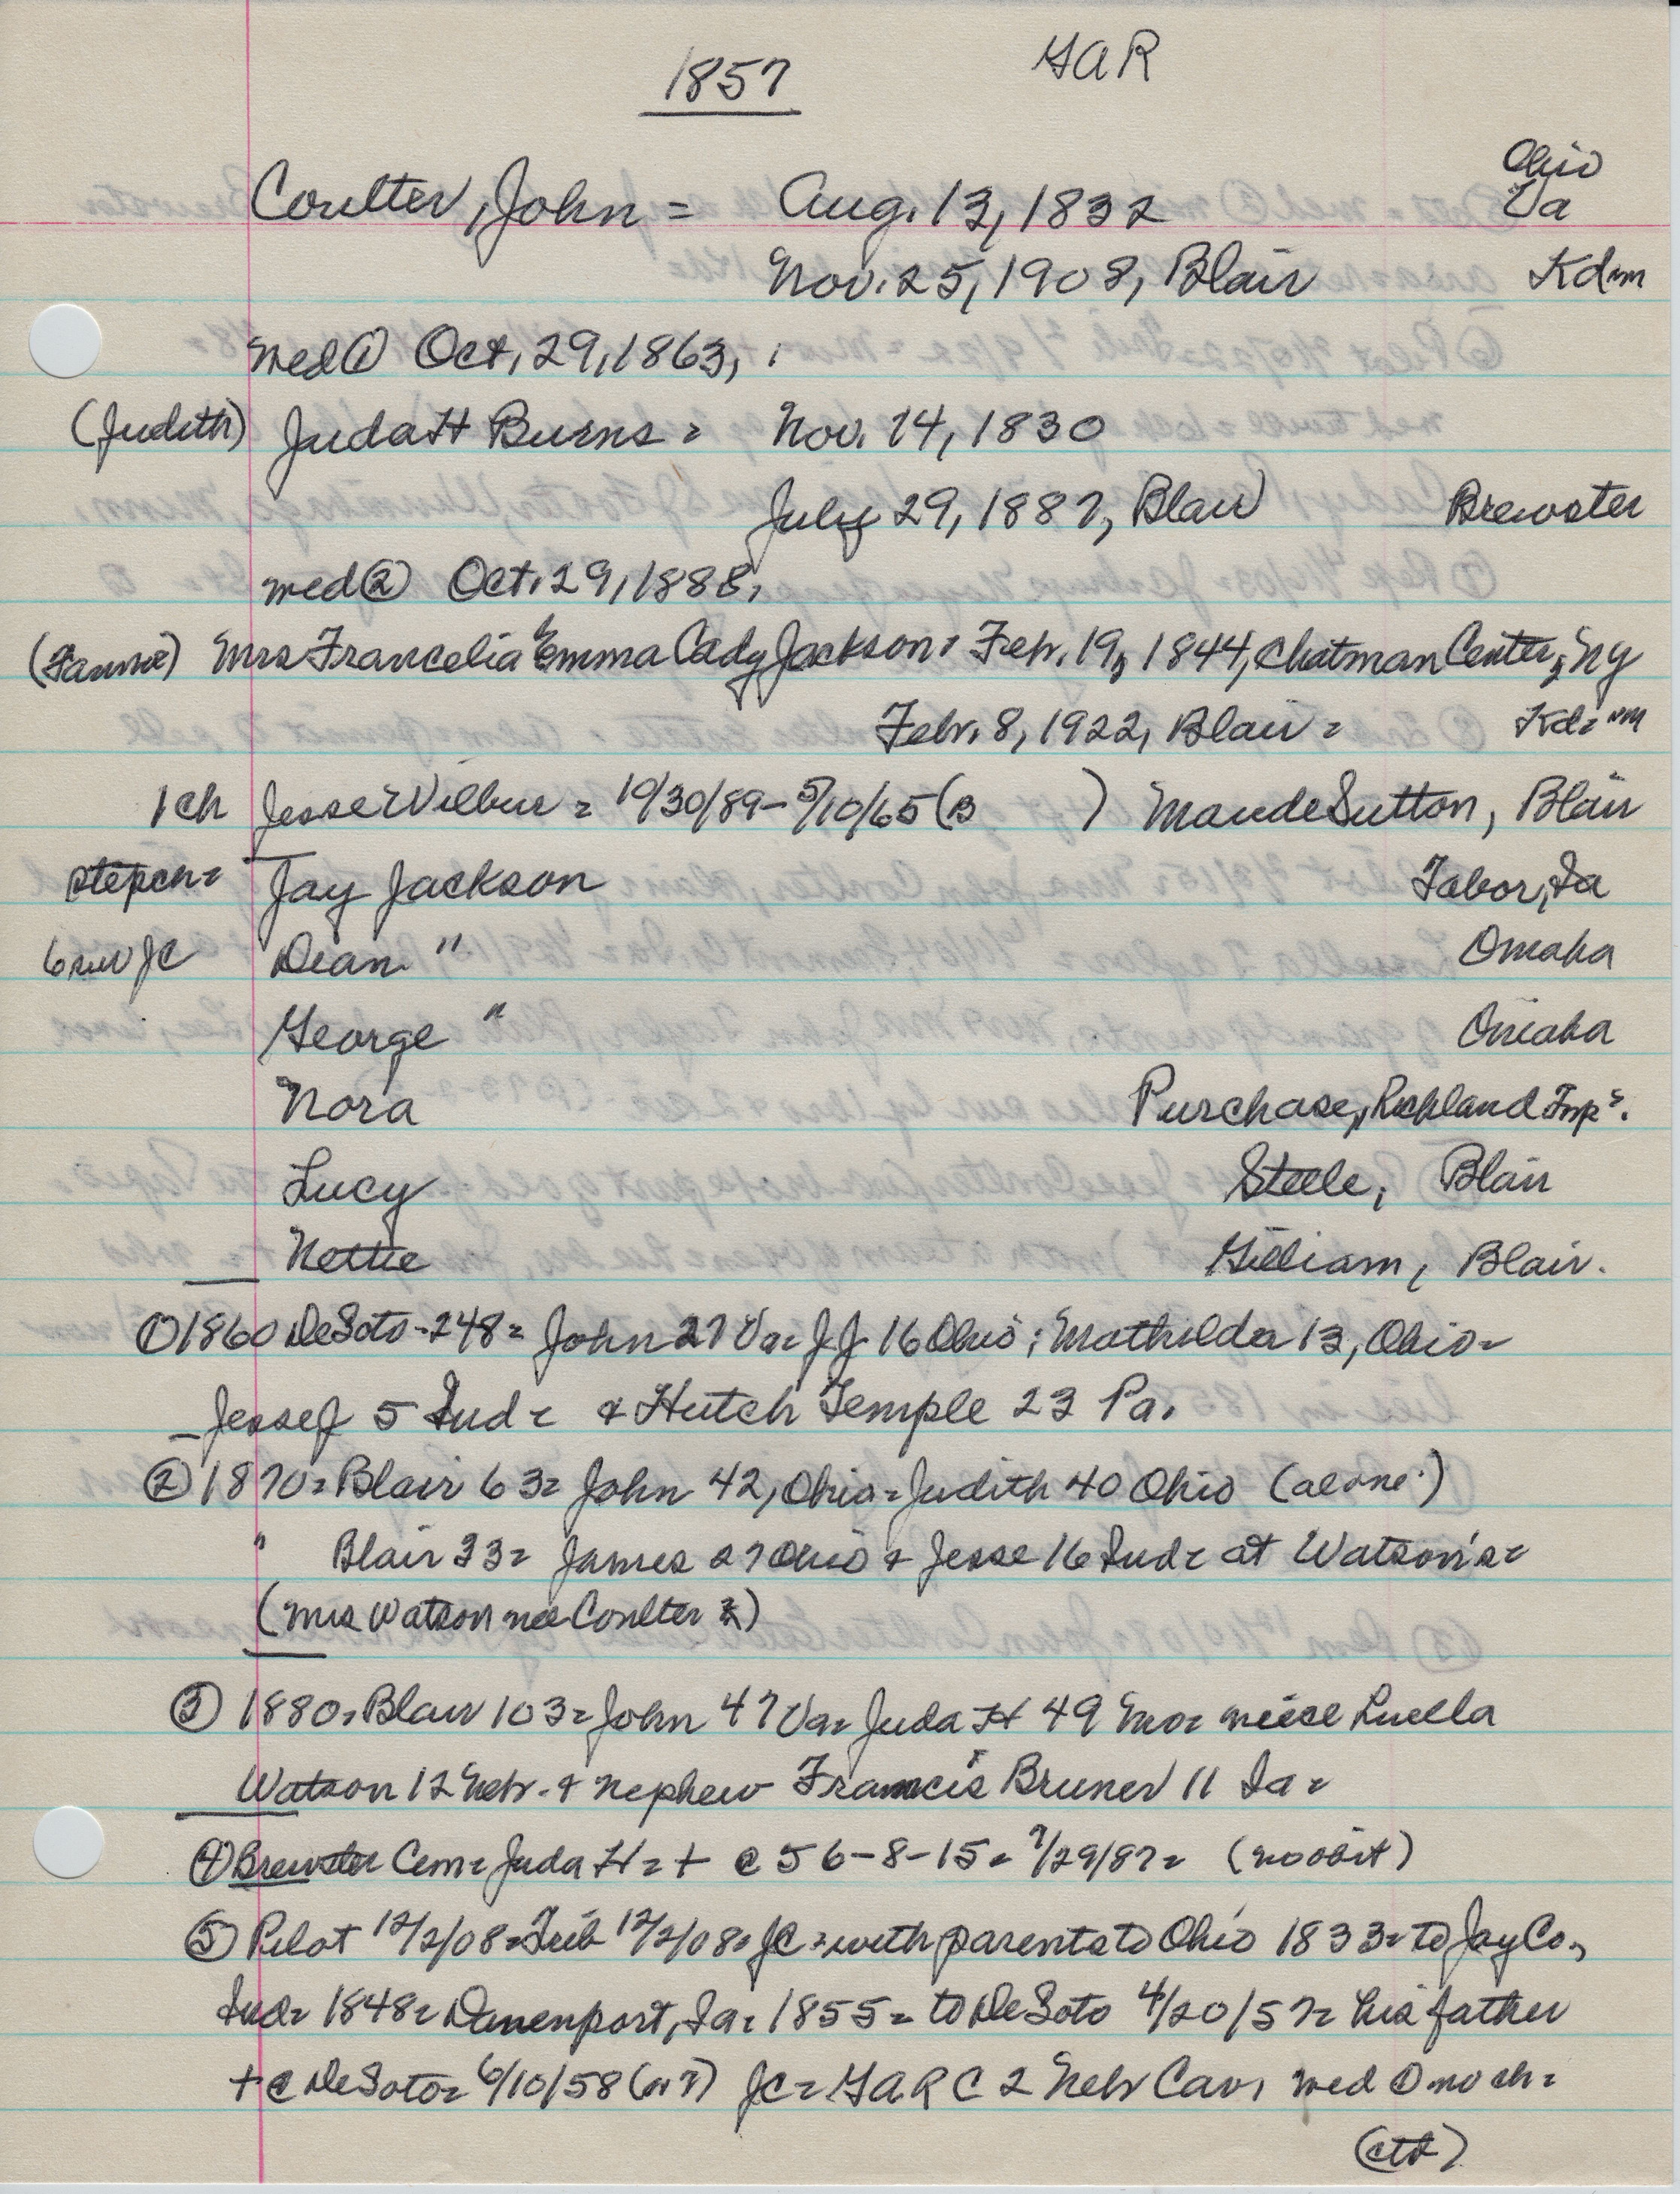 1857 GAR
Ohio
Coulter, John = Aug. 13, 1832 Va
Nov. 25, 1908, Blair Kdm
med ① Oct, 29, 1863,
(Judith) Juda H Burns = Nov. 14, 1830
July 29, 1887, Blair Brewster
med ② Oct. 29, 1888,
(Fannie) Mrs Francelia Emma Cady Jackson = Febr. 19, 1844, Chatman Center, NY
Febr. 8, 1922, Blair = Kd=
1 ch Jesse Wilbur = 10/30/89 - 5/10/65 (B ) Maude Sutton, Blair
stepch = Jay Jackson Tabor, Ia
6 sur JC Dean " Omaha
George " Omaha
Nora Purchase, Richland Twp.
Lucy Steele, Blair
Nettie Gilliam, Blair.
① 1860 DeSoto - 248 = John 27 Va = J J 16 Ohio; Mathilda 13, Ohio =
Jesse J 5 Ind = & Hutch Temple 23 Pa.
② 1870 = Blair 63 = John 42, Ohio = Judith 40 Ohio (alone)
" Blair 33 = James 27 Ohio & Jesse 16 Ind = at Watson's =
(Mrs Watson nee Coulter )
③ 1880 = Blair 103 = John 47 Va = Juda H 49 = niece Luella
Watson 12 Nebr. & nephew Francis Bruner 11 Ia =
④ Brewster Cem = Juda H = + @ 56-8-15 = 7/29/87 = (no obit)
⑤ Pilot 12/2/08 = Trib 12/2/08 = JC = with parents to Ohio 1833 = to Jay Co.,
Ind = 1848 = Davenport, Ia = 1855 = to DeSoto 4/20/57 = his father
+ @ DeSoto = 6/10/58 (or 7) JC = GAR C 2 Nebr Cav, med ① no ch =
(ctd)